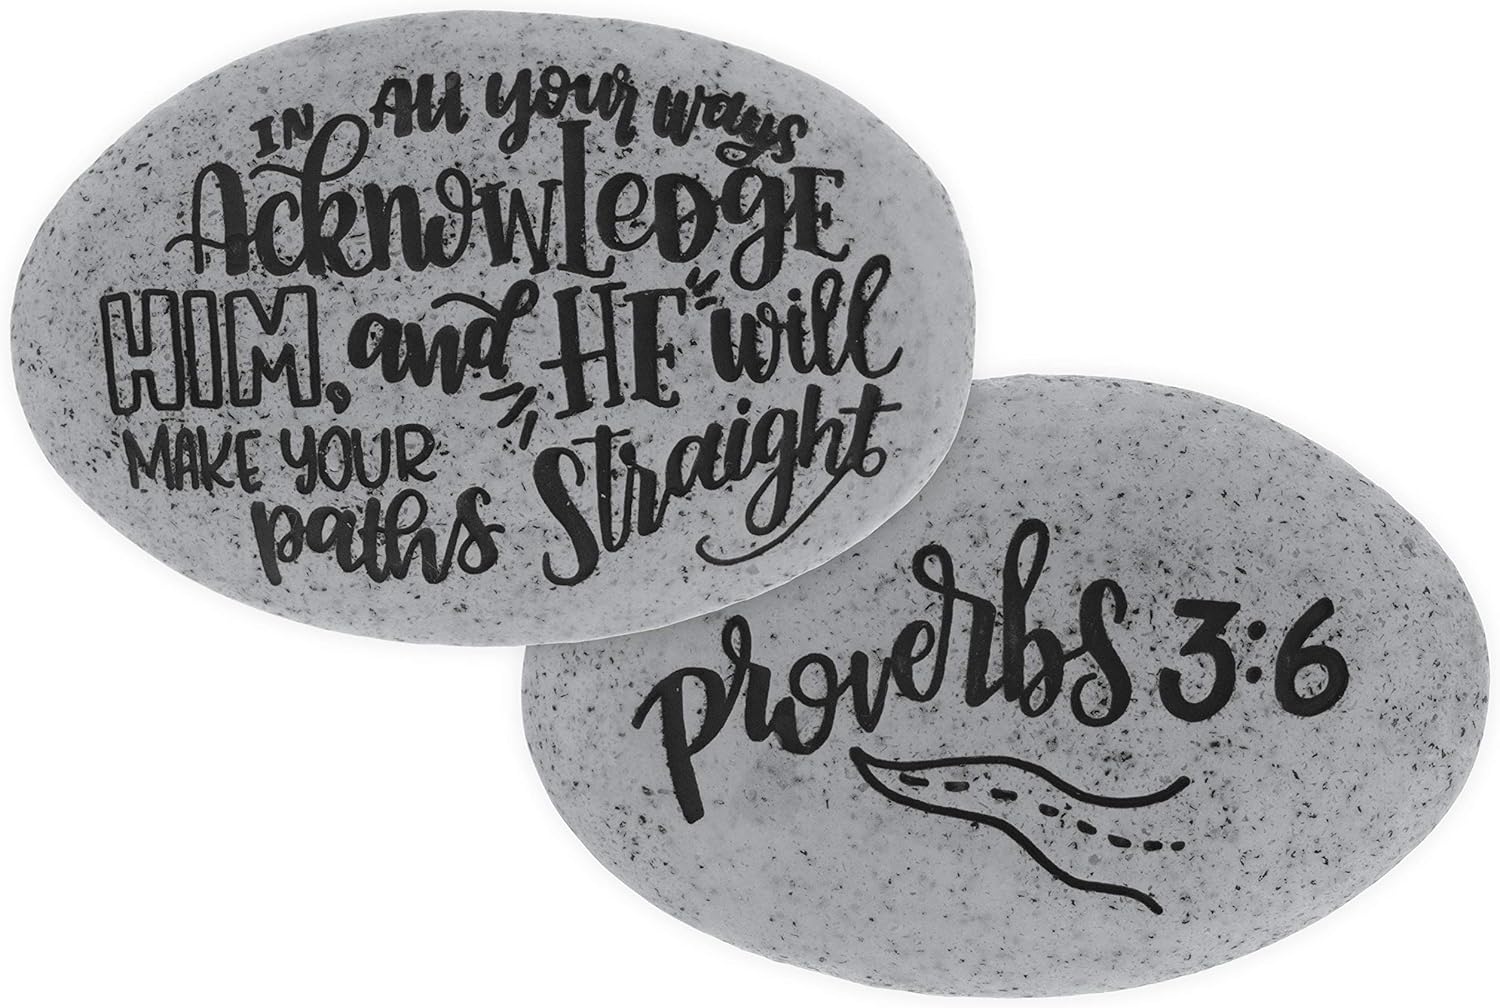 IN All your ways
AcknowlEDgE
HIM, and HE will
MAKE YOUR
paths Straight
proverbs 3:6